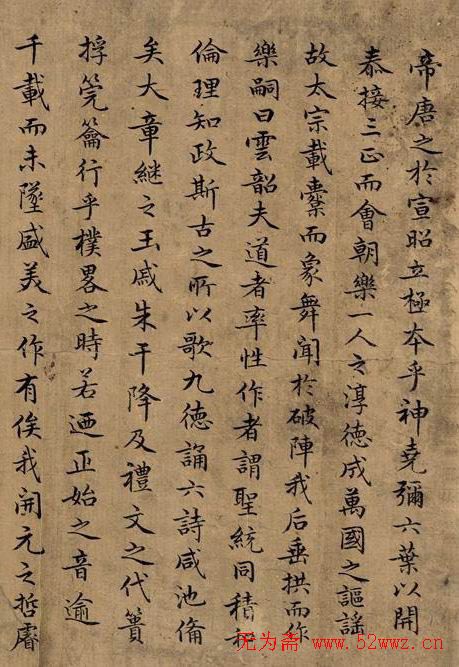 帝唐之於宣昭立極本乎神堯彌六葉以開
泰接三正而會朝樂一人之淳德成萬國之謳謠
故太宗載櫜而象舞聞於破陣我后垂拱而作
樂嗣曰雲韶夫道者率性作者謂聖統同積
倫理知政斯古之所以歌九德誦六詩咸池備
矣大章継之玉戚朱干降及禮文之代簣
桴筦籥行乎樸畧之時若迺正始之音逾
千載而未墜盛美之作有俟我開元之哲睿
无为斋：www.52wwz.cn